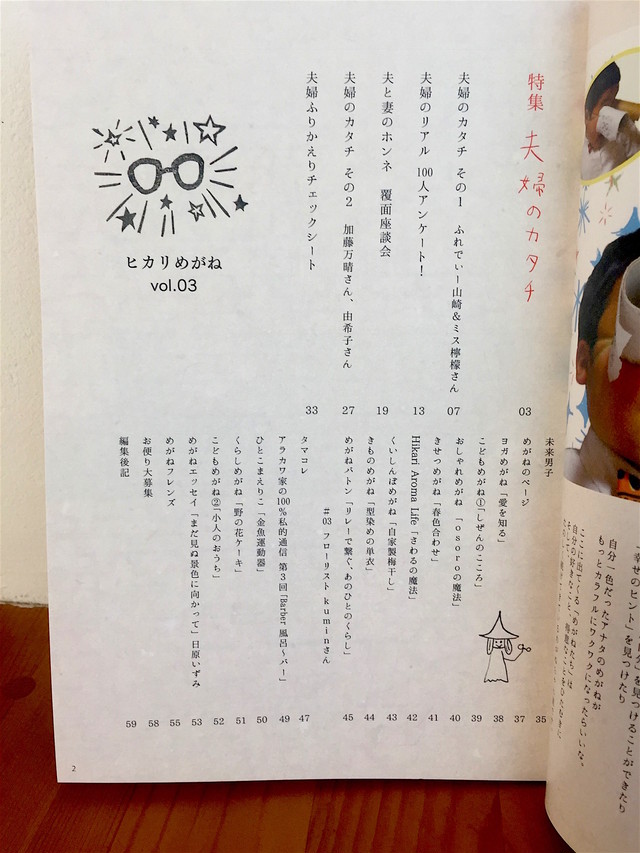 特集 夫婦のカタチ 03
夫婦のカタチ その1 ふれでぃー山崎&ミス檸檬さん 07
夫婦のリアル 100人アンケート! 13
夫と妻のホンネ 覆面座談会 19
夫婦のカタチ その2 加藤万晴さん、由希子さん 27
夫婦ふりかえりチェックシート 33
ヒカリめがね
vol.03
未来男子 35
めがねのページ 37
ヨガめがね「愛を知る」 38
こどもめがね①「しぜんのこころ」 39
おしゃれめがね 「osoroの魔法」 40
きせつめがね「春色合わせ」 41
Hikari Aroma Life「さわるの魔法」 42
くいしんぼめがね「自家製梅干し」 43
きものめがね「型染めの単衣」 44
めがねバトン「リレーで繋ぐ、あのひとのくらし」 45
#03 フローリスト kuminさん
タマコレ 47
アラカワ家の100%私的通信 第3回「Barber 風呂〜バー」 49
ひとこまえりこ「金魚運動器」 50
くらしめがね「野の花ケーキ」 51
こどもめがね②「小人のおうち」 52
めがねエッセイ「まだ見ぬ景色に向かって」日原いずみ 53
めがねフレンズ 55
お便り大募集 58
編集後記 59
2
を見つけることができたり
「幸せのヒント」を見つけたり
自分一色だったアナタのめがねが
もっとカラフルにワクワクになったらいいな。
ここに出てくる「めがねたち」は
自分の好きなこと、得意なことを